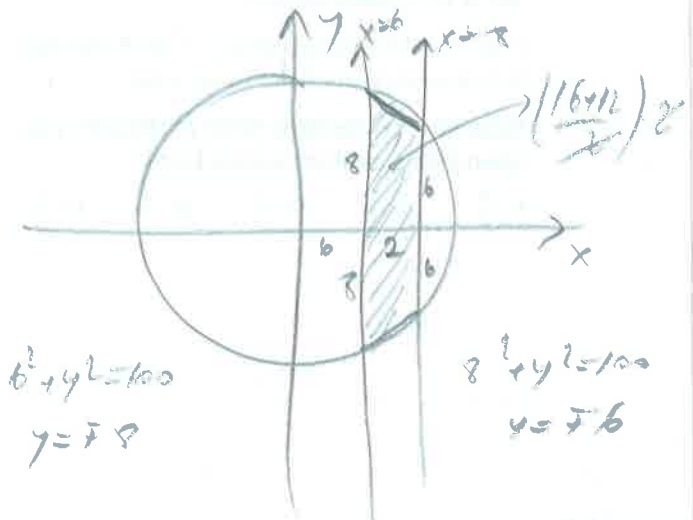 y x=6 x=8
(16+12/2) 2
8 6
6 2 x
8 6
6²+y²=100 8²+y²=100
y=∓8 y=∓6